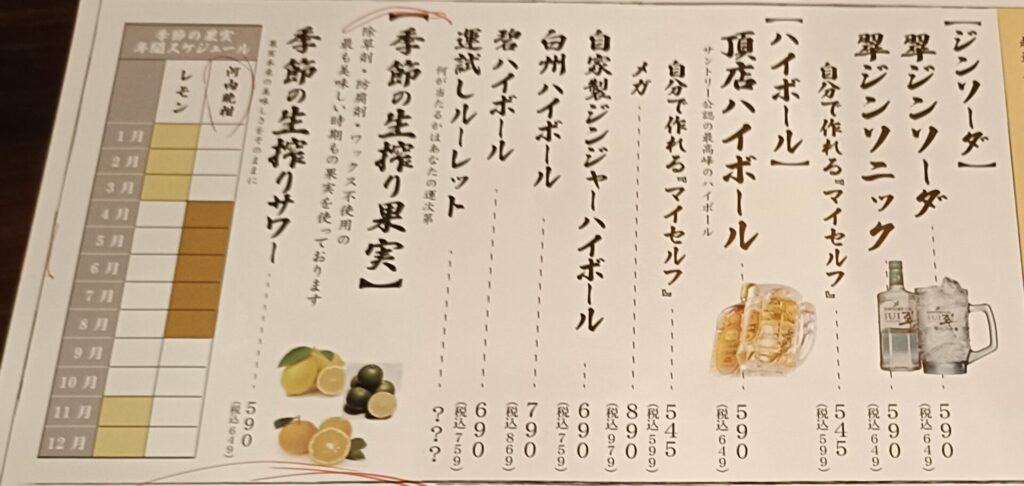 【ジンソーダ】
翠ジンソーダ 590 (税込649)
翠ジンソニック 590 (税込649)
自分で作れる『マイセルフ』 545 (税込599)
【ハイボール】
頂店ハイボール 590 (税込649)
サントリー公認の最高峰のハイボール
自分で作れる『マイセルフ』 545 (税込599)
メガ 890 (税込979)
自家製ジンジャーハイボール 690 (税込759)
白州ハイボール 790 (税込869)
碧ハイボール 690 (税込759)
運試しルーレット ???
何が当たるかはあなたの運次第
【季節の生搾り果実】
除草剤・防腐剤・ワックス不使用の
最も美味しい時期もの果実を使っております
季節の生搾りサワー 590 (税込649)
果実本来の美味しさをそのままに
季節の果実
年間スケジュール
河内晩柑
レモン
1月
2月
3月
4月
5月
6月
7月
8月
9月
10月
11月
12月